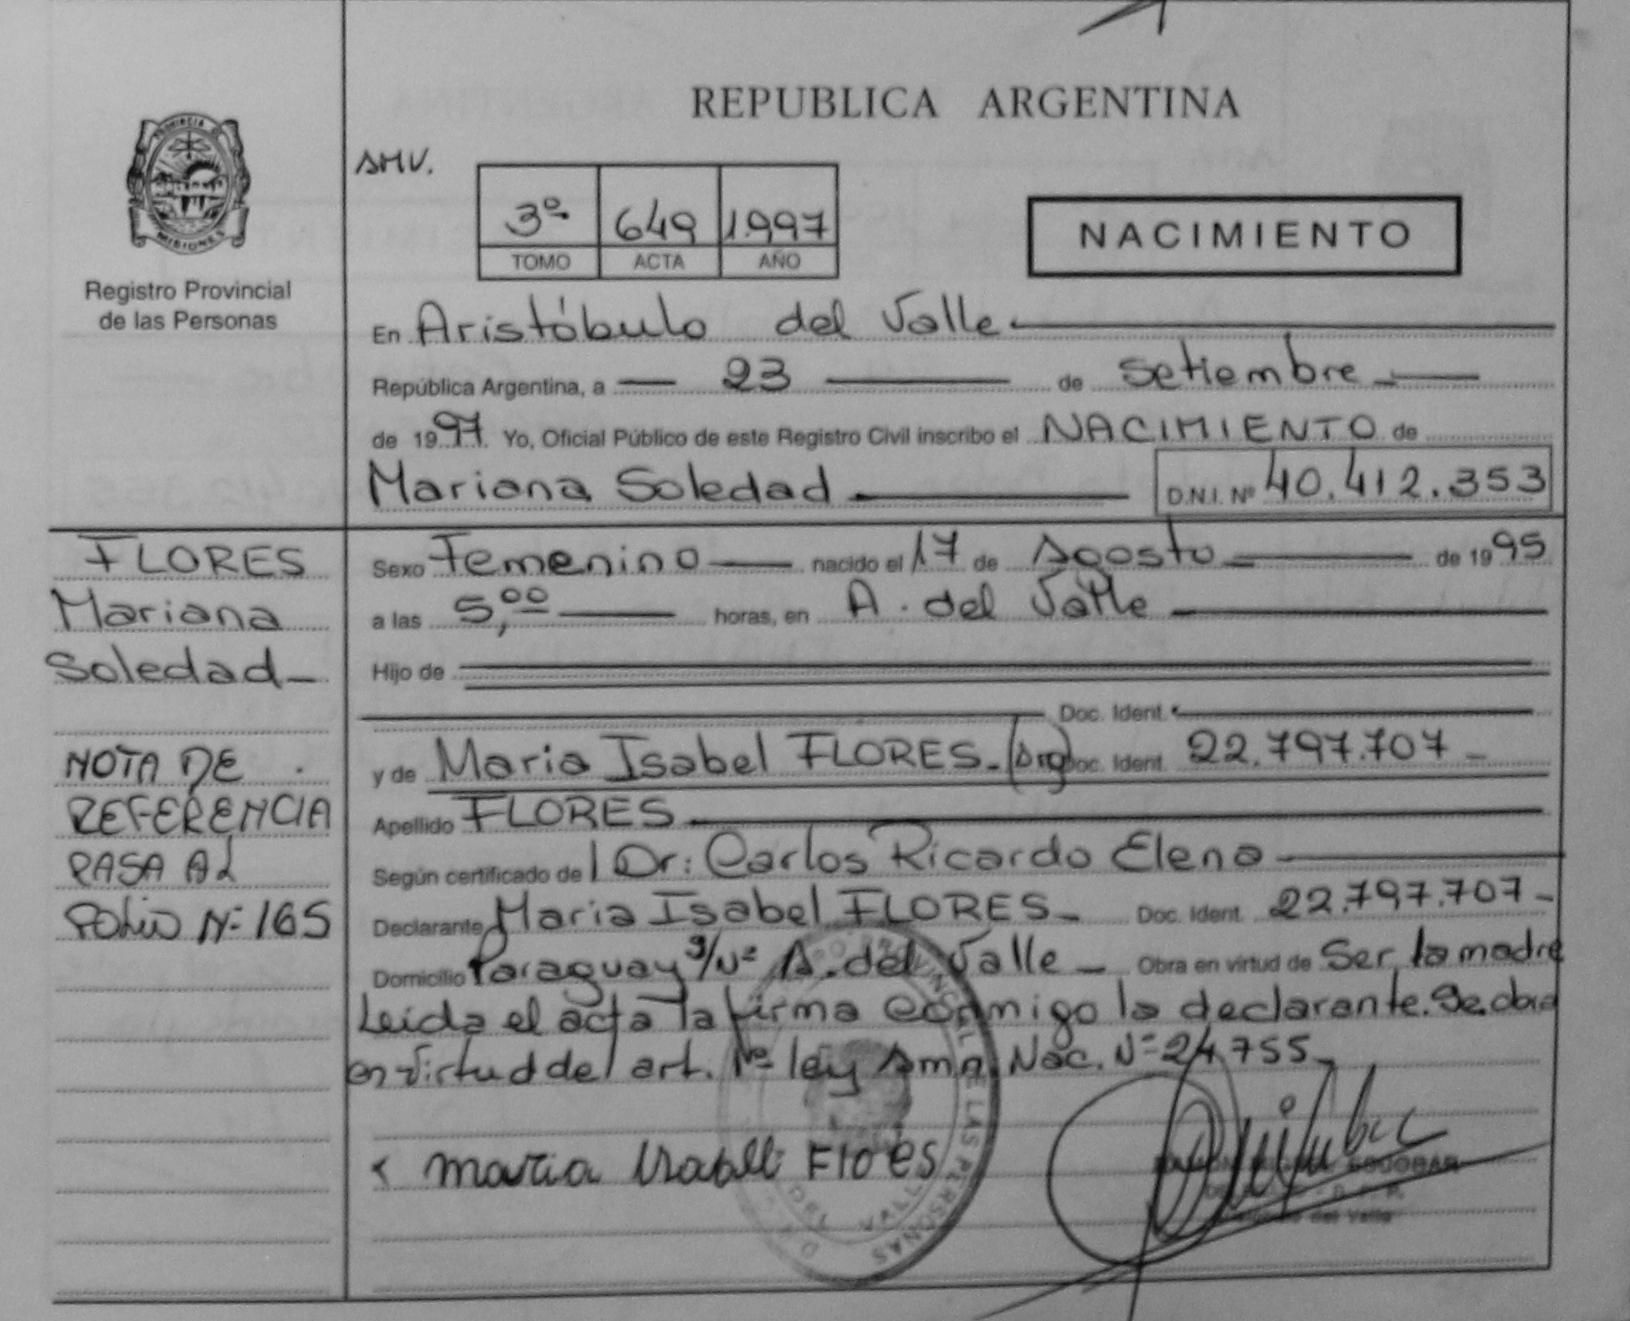 REPUBLICA ARGENTINA
PROVINCIA DE
MISIONES
Registro Provincial
de las Personas
AMV.
3º 649 1.997
TOMO ACTA AÑO
NACIMIENTO
En Aristóbulo del Valle
República Argentina, a 23 de Setiembre
de 1997. Yo, Oficial Público de este Registro Civil inscribo el NACIMIENTO de
Mariana Soledad D.N.I. Nº 40.412.353
FLORES
Mariana
Soledad
NOTA DE
REFERENCIA
PASA AL
FOLIO Nº 165
Sexo Femenino nacido el 17 de Agosto de 1995
a las 5,00 horas, en A. del Valle
Hijo de
Doc. Ident.
y de Maria Isabel FLORES. (Arg) Doc. Ident. 22.797.707
Apellido FLORES
Según certificado de Dr: Carlos Ricardo Elena
Declarante Maria Isabel FLORES Doc. Ident. 22.797.707
Domicilio Paraguay s/Nº A. del Valle Obra en virtud de Ser la madre
Leída el acta la firma conmigo la declarante. Se obra
en virtud del art. 1º ley Amn. Nac. Nº 24.755
Maria Isabel Flores
ESCOBAR
del Valle